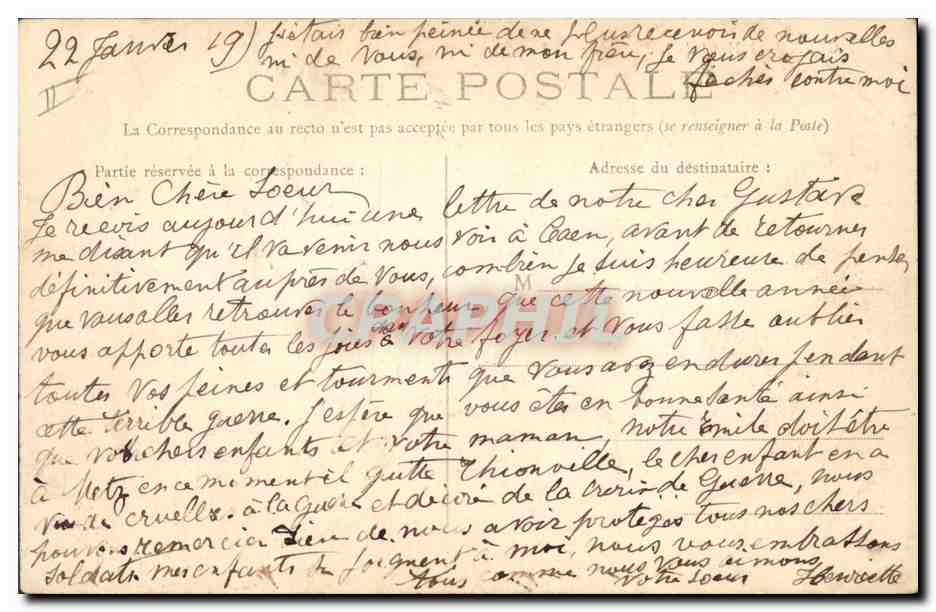 22 Janvier 19) J'étais bien peinée de ne plus recevoir de nouvelles
ni de vous, ni de mon frère, je vous croyais
fachés contre moi
II
CARTE POSTALE
La Correspondance au recto n'est pas acceptée par tous les pays étrangers (se renseigner à la Poste)
Partie réservée à la correspondance :
Adresse du destinataire :
Bien Chère Soeur
Je recois aujourd'hui une lettre de notre cher Gustave
me disant qu'il va venir nous voir à Caen, avant de retourner
définitivement auprès de vous, combien je suis heureuse de penser
que vous allez retrouver le bonheur que cette nouvelle année
vous apporte toutes les joies à votre foyer et vous fasse oublier
toutes vos peines et tourments que vous avez endurés pendant
cette terrible guerre. J'espère que vous êtes en bonne santé ainsi
que vos chers enfants et votre maman, notre Emile doit être
à Metz en ce moment il quitte Thionville, le cher enfant en a
vu de cruelles à la guerre et décoré de la croix de Guerre, nous
pouvons remercier Dieu de nous avoir protégés tous nos chers
soldats mes enfants se joignent à moi, nous vous embrassons
tous comme nous vous aimons
Votre Soeur Henriette
M
CRAPHIL